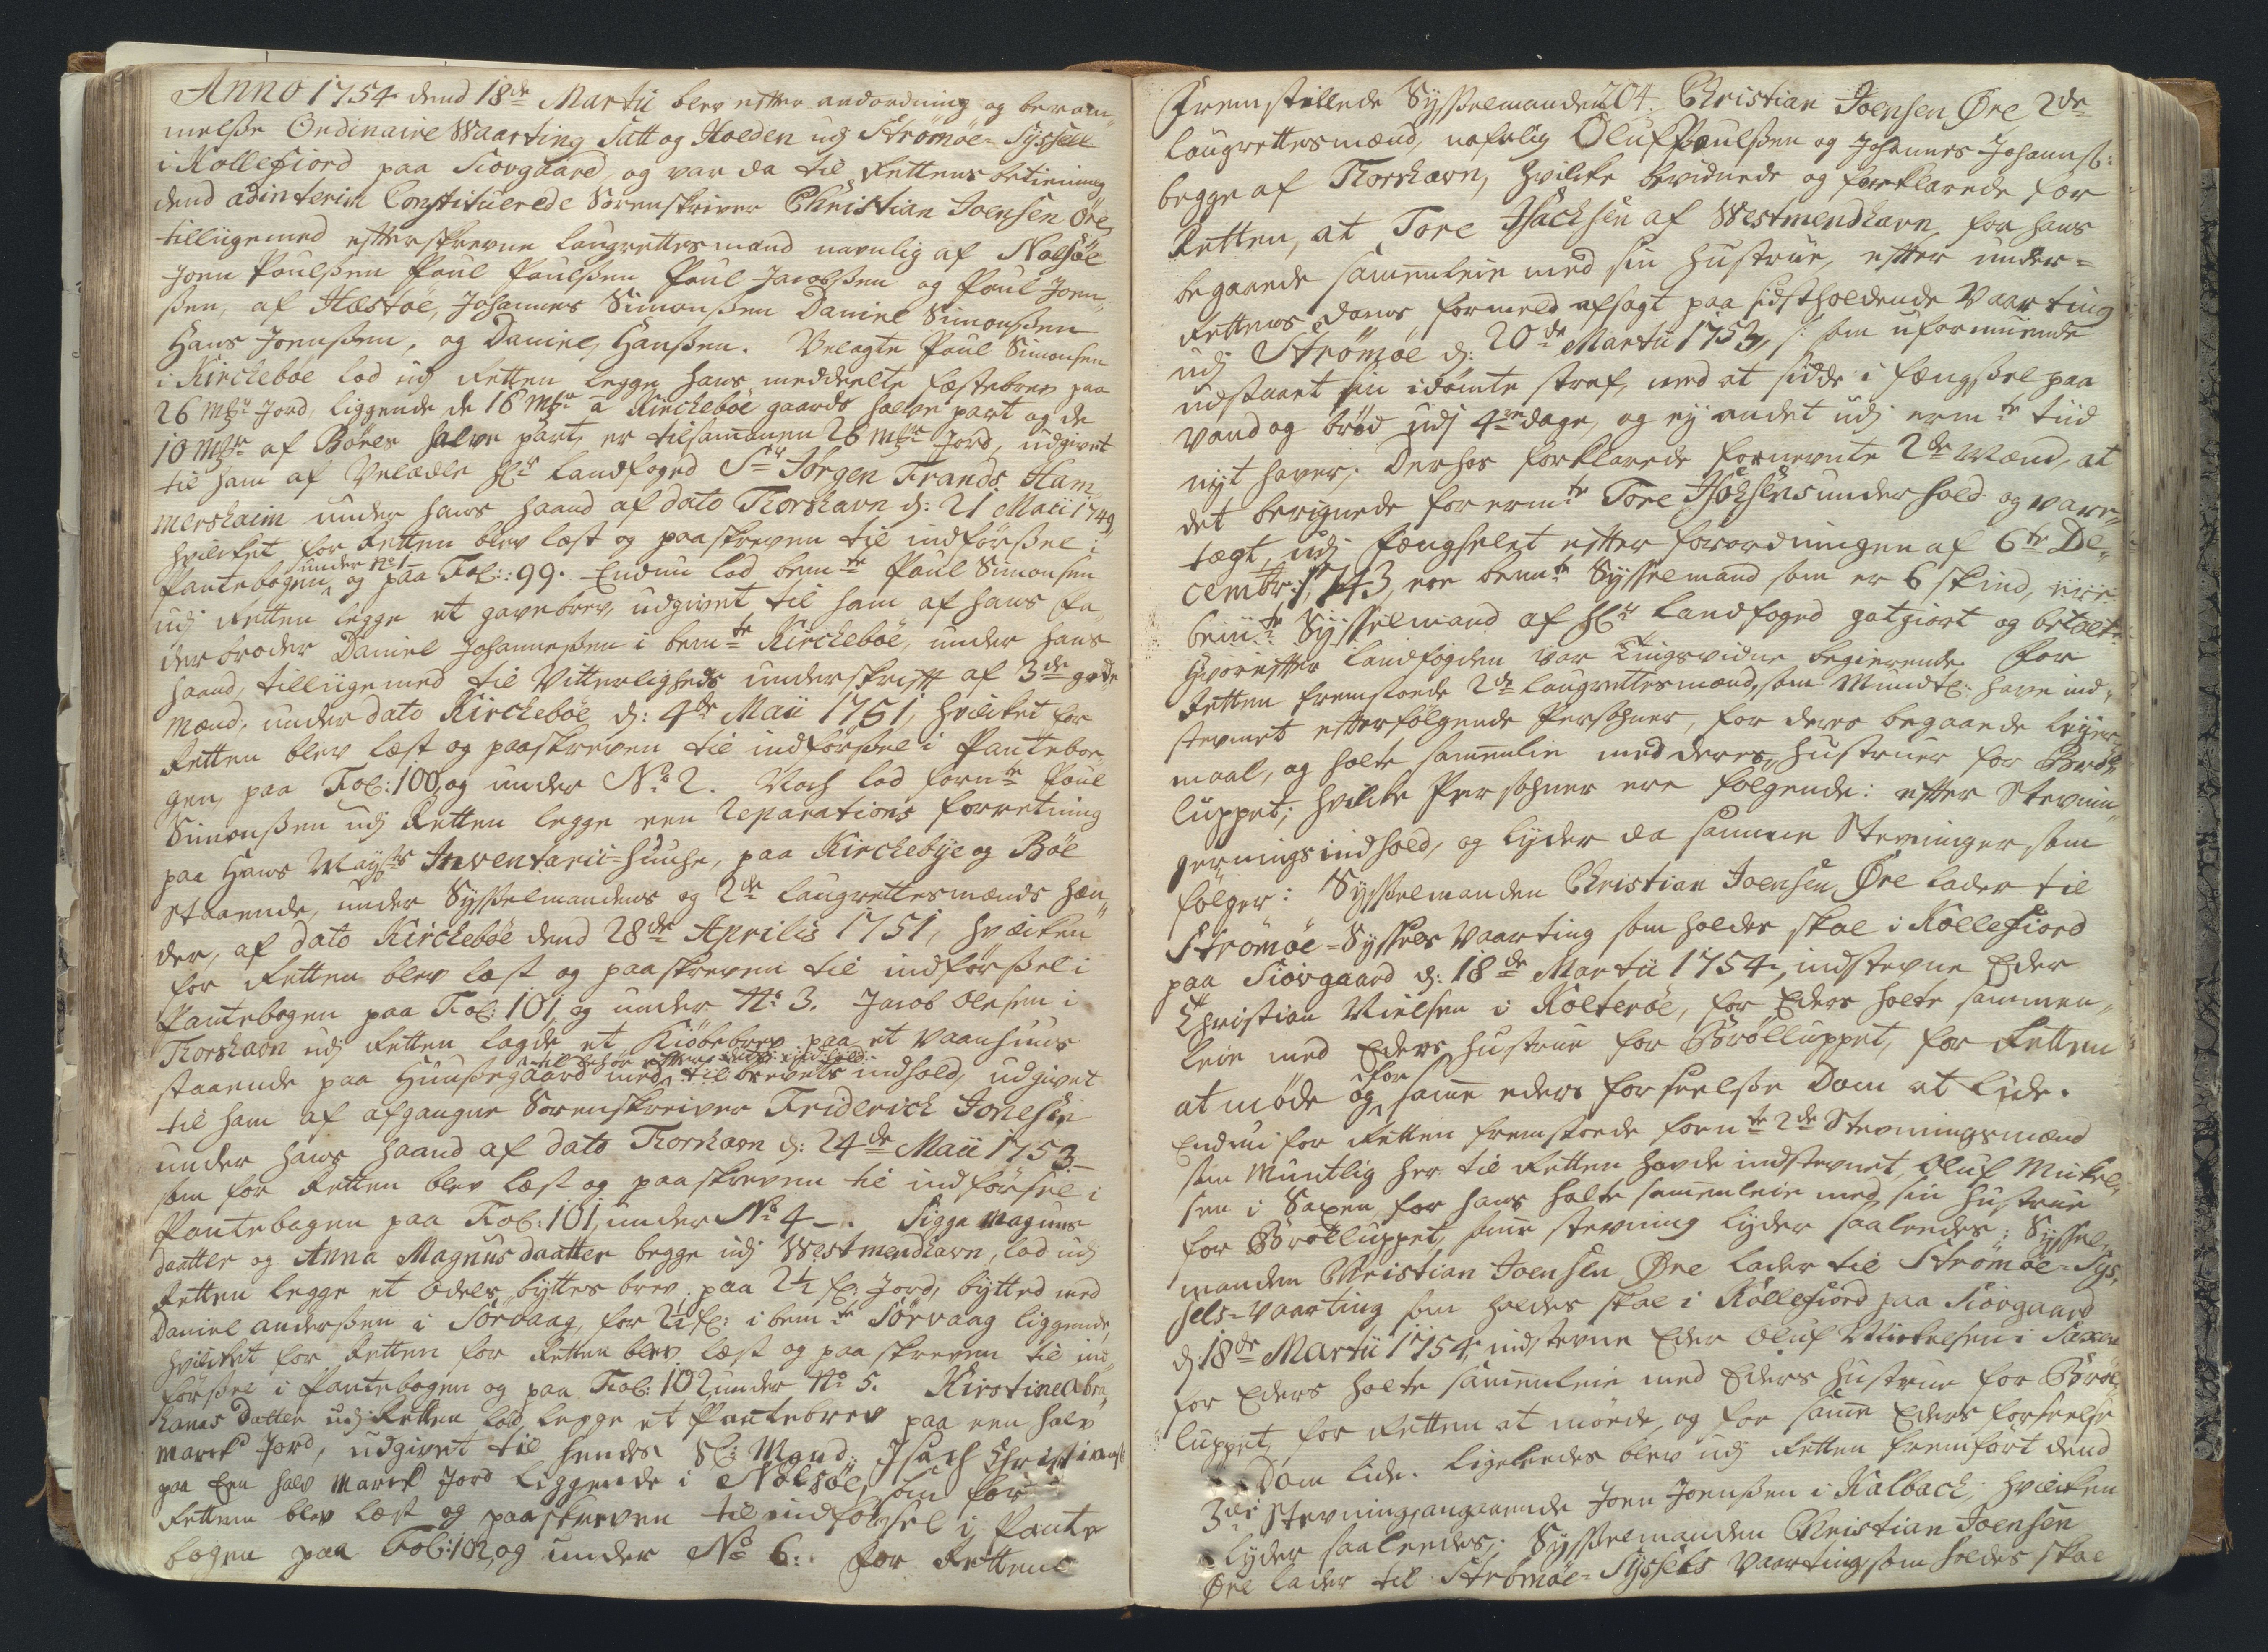 Anno 1754 dend 18de Martii blev efter anordning og beram„
melsse Ordinaire Waarting Satt og Holden udj Strömöe Syssell
i Kollefiord paa Siovgaard, og var da til Rettens betiening
dend adinterim Constituerede Sorenskriver Christian Joensen Öre
tilligemed efterskrevne laugrettesmænd navnlig af Nolsöe
Joen Poulssen Poul Poulssen Poul Jacobssen og Poul Joen„
ssen, af Hæstöe, Johannes Simonssen Daniel Simonssen
Hans Joenssen, og Daniel Hanssen. Velagte Poul Simonsen
i Kircheböe lod udj Retten legge hans meddeelte fæstebrev paa
26 Mkr Jord, liggende de 16 Mkr a Kircheböe gaards halve part og de
10 Mkr af Böels halve part, er tilsammen 26 Mkr Jord, udgivet
til ham af Velædle Hr Landfoged Sr Jörgen Frands Ham„
mershaim under hans haand af dato Thorshavn d: 21 Maii 1749,
hvilcket for Retten blev læst og paaskreven til indförssel i
Pantebogen under No 1 og paa Fol: 99. Endnu lod bemte Poul Simonsen
udj Retten legge et gavebrev udgivet til ham af hans fa„
der broder Daniel Johannessen i bemte Kircheböe, under hans
haand, tilligemed til Vitterligheds underskrift af 3de gode
Mænd, under dato Kircheböe d: 4de Maii 1751, hvilcket for
Retten blev læst og paaskreven til indförssel i Panteboe„
gen, paa Fol: 100, og under No 2. Noch lod fornte Poul
Simonssen udj Retten legge een Reparations forretning
paa Hans Mayts Inventarii-Huuse, paa Kirchebÿe og Böe
staaende, under Sysselmandens og 2de laugrettesmænds hæn„
der, af dato Kircheböe dend 28de Aprilis 1751, hvilcken
for Retten blev læst og paaskreven til indförssel i
Pantebogen paa Fol: 101, og under No 3. Jacob Olesen i
Thorshavn udj Retten lagde et Kiöbebrev paa et Vaanhuus
staaende paa Huusegaard med til behör efter til brevets indhold, udgivet
til ham af afgangne Sorenskriver Friderich Jonesen
under hans haand af dato Thorshavn d: 24de Maii 1753.
som for Retten blev læst og paaskreven til indförsel i
Pantebogen paa Fol: 101, under No 4. Sigga Magnus
daatter og Anna Magnusdaatter begge udj Westmendhavn, lod udj
Retten legge et Odels byttes brev paa 2½ sk: Jord, bytted med
Daniel anderssen i Sörvaag, for 2½ sk: i bemte Sörvaag liggende,
hvilcket for Retten for Retten blev læst og paaskreven til ind„
förssel i Pantebogen og paa Fol: 102 under No 5. Kirstine Abra„
hams Datter udj Retten lod legge et Pantebrev paa een halv
Marck Jord, udgivet til hendes Sl: Mand, Isach Christianss
paa Een halv Marck Jord liggende i Nolsöe, som for
Retten blev læst og paaskreven til indförsel i Pante
bogen paa Fol: 102, og under No 6. for Rettens
204.
Fremstillede Sysselmanden Christian Joensen Öre 2de
laugrettesmænd, nafnlig Oluf Poulssen og Johannes Johanss:
begge af Thorshavn, hvilcke bevidnede og forklarede for
Retten, at Tore Isachsen af Westmendhavn for hans
begaaende samenleie med sin Hustrue, efter under=
Rettens doms formeld afsagt paa sidstholdende Vaarting
udj Strömöe d: 20de Martii 1753, /: som uformuende
udstaaet sin idömte straf, med at sidde i fængssel paa
Vand og bröd udj 4re dage, og ej andet udj ermte tiid
nyt haver; Derhos forklarede fornevnte 2de Mænd, at
det beregnede for ermte Tore Isachsens underhold og vare„
tægt, udj fængselet efter forordningen af 6te De„
cembr: 1743, ere bemte Sysselmand som er 6 skind,
bemte Sysselmand af Hr Landfoged gotgiort og betalt:
Hvorefter Landfogden var Tingsvidne begierende. For
Retten fremstoede 2de laugrettesmænd, som Mundtl: have ind„
stevnet efterfölgende Persohner, for deres begaaende leyer„
maal, og holte samenlie med deres Hustruer for Bröl„
luppet; hvilcke Persohner ere fölgende: efter Stevnin„
gernings indhold, og lyder da samme Stevninger som
fölger: Sysselmanden Christian Joensen Öre lader til
Strömöe-Syssels Vaarting som holdes skal i Kollefiord
paa Siovgaard d: 18de Martii 1754, indstevne Eder
Christian Nielsen i Kolteröe, for Eders holte sammen„
leie med Eders Hustrue for Brölluppet, for Retten
at möde og for samme eders forseelsse Dom at lide.
Endnu for Retten fremstoede fornte 2de Stevningsmænd
som Muntlig her til Retten havde indstevnet Oluf Mickel„
sen i Saxen, for hans holte samenleie med sin Hustrue
for Brölluppet, samme stevning lyder saaleedes: Syssel„
manden Christian Joensen Öre lader til Strömöe-Sys„
sels-Vaarting som holdes skal i Kollefiord paa Siovgaard
d: 18de Martii 1754, indstevne Eder Oluf Mickelsen i Saxen
for Eders holte samenleie med Eders Hustrue for Bröl„
luppet, for Retten at möede, og for samme Eders forseelse
Dom lide. Ligeleedes blev udj Retten fremfört dend
3die Stevning, angaaende Joen Joenssen i Kalback, hvilcken
lyder saaleedes; Sysselmanden Christian Joensen
Öre lader til Strömöe-Syssels Vaarting, som holdes skal